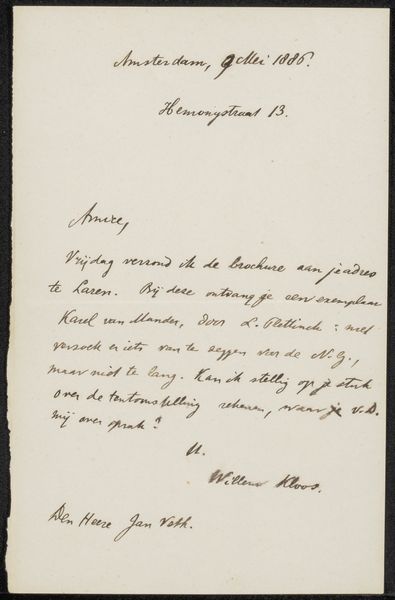 Amsterdam, 9 Mei 1886.
Hemonystraat 13.
Amice,
Vrijdag verzond ik de brochure aan je adres
te Laren. Bij deze ontvang je een exemplaar
Karel van Mander, door L. Plettinck: met
verzoek er iets van te zeggen voor de N.G.,
maar niet te lang. Kan ik stellig op je stuk
over de tentoonstelling rekenen, waar je v.D.
mij over sprak?
tt.
Willem Kloos.
Den Heere Jan Veth.